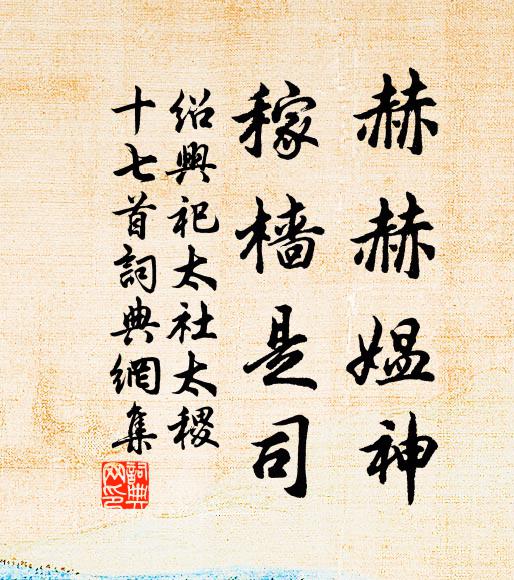 赫赫媼神
稼檣是司
紹興祀太社太稷
十七首詞典網集
詞典
网印